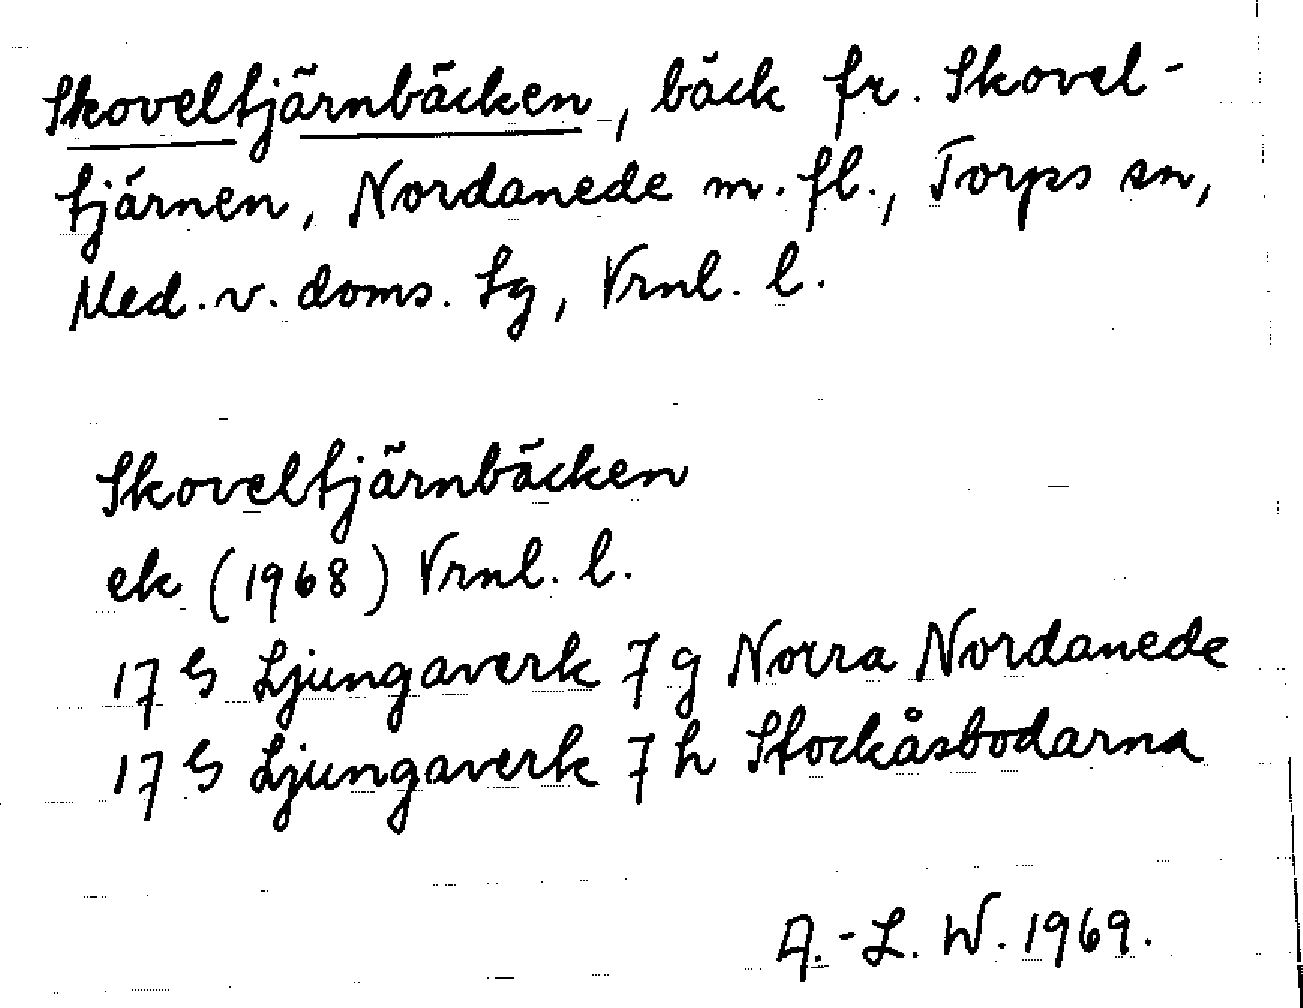 Skoveltjärnbäcken, bäck fr. Skovel-
tjärnen, Nordanede m. fl., Torps sn,
Med. v. doms. tg, Vrnl. l.
Skoveltjärnbäcken
ek (1968) Vrnl. l.
17 G Ljungaverk 7 g Norra Nordanede
17 G Ljungaverk 7 h Stockåsbodarna
A.-L. W. 1969.